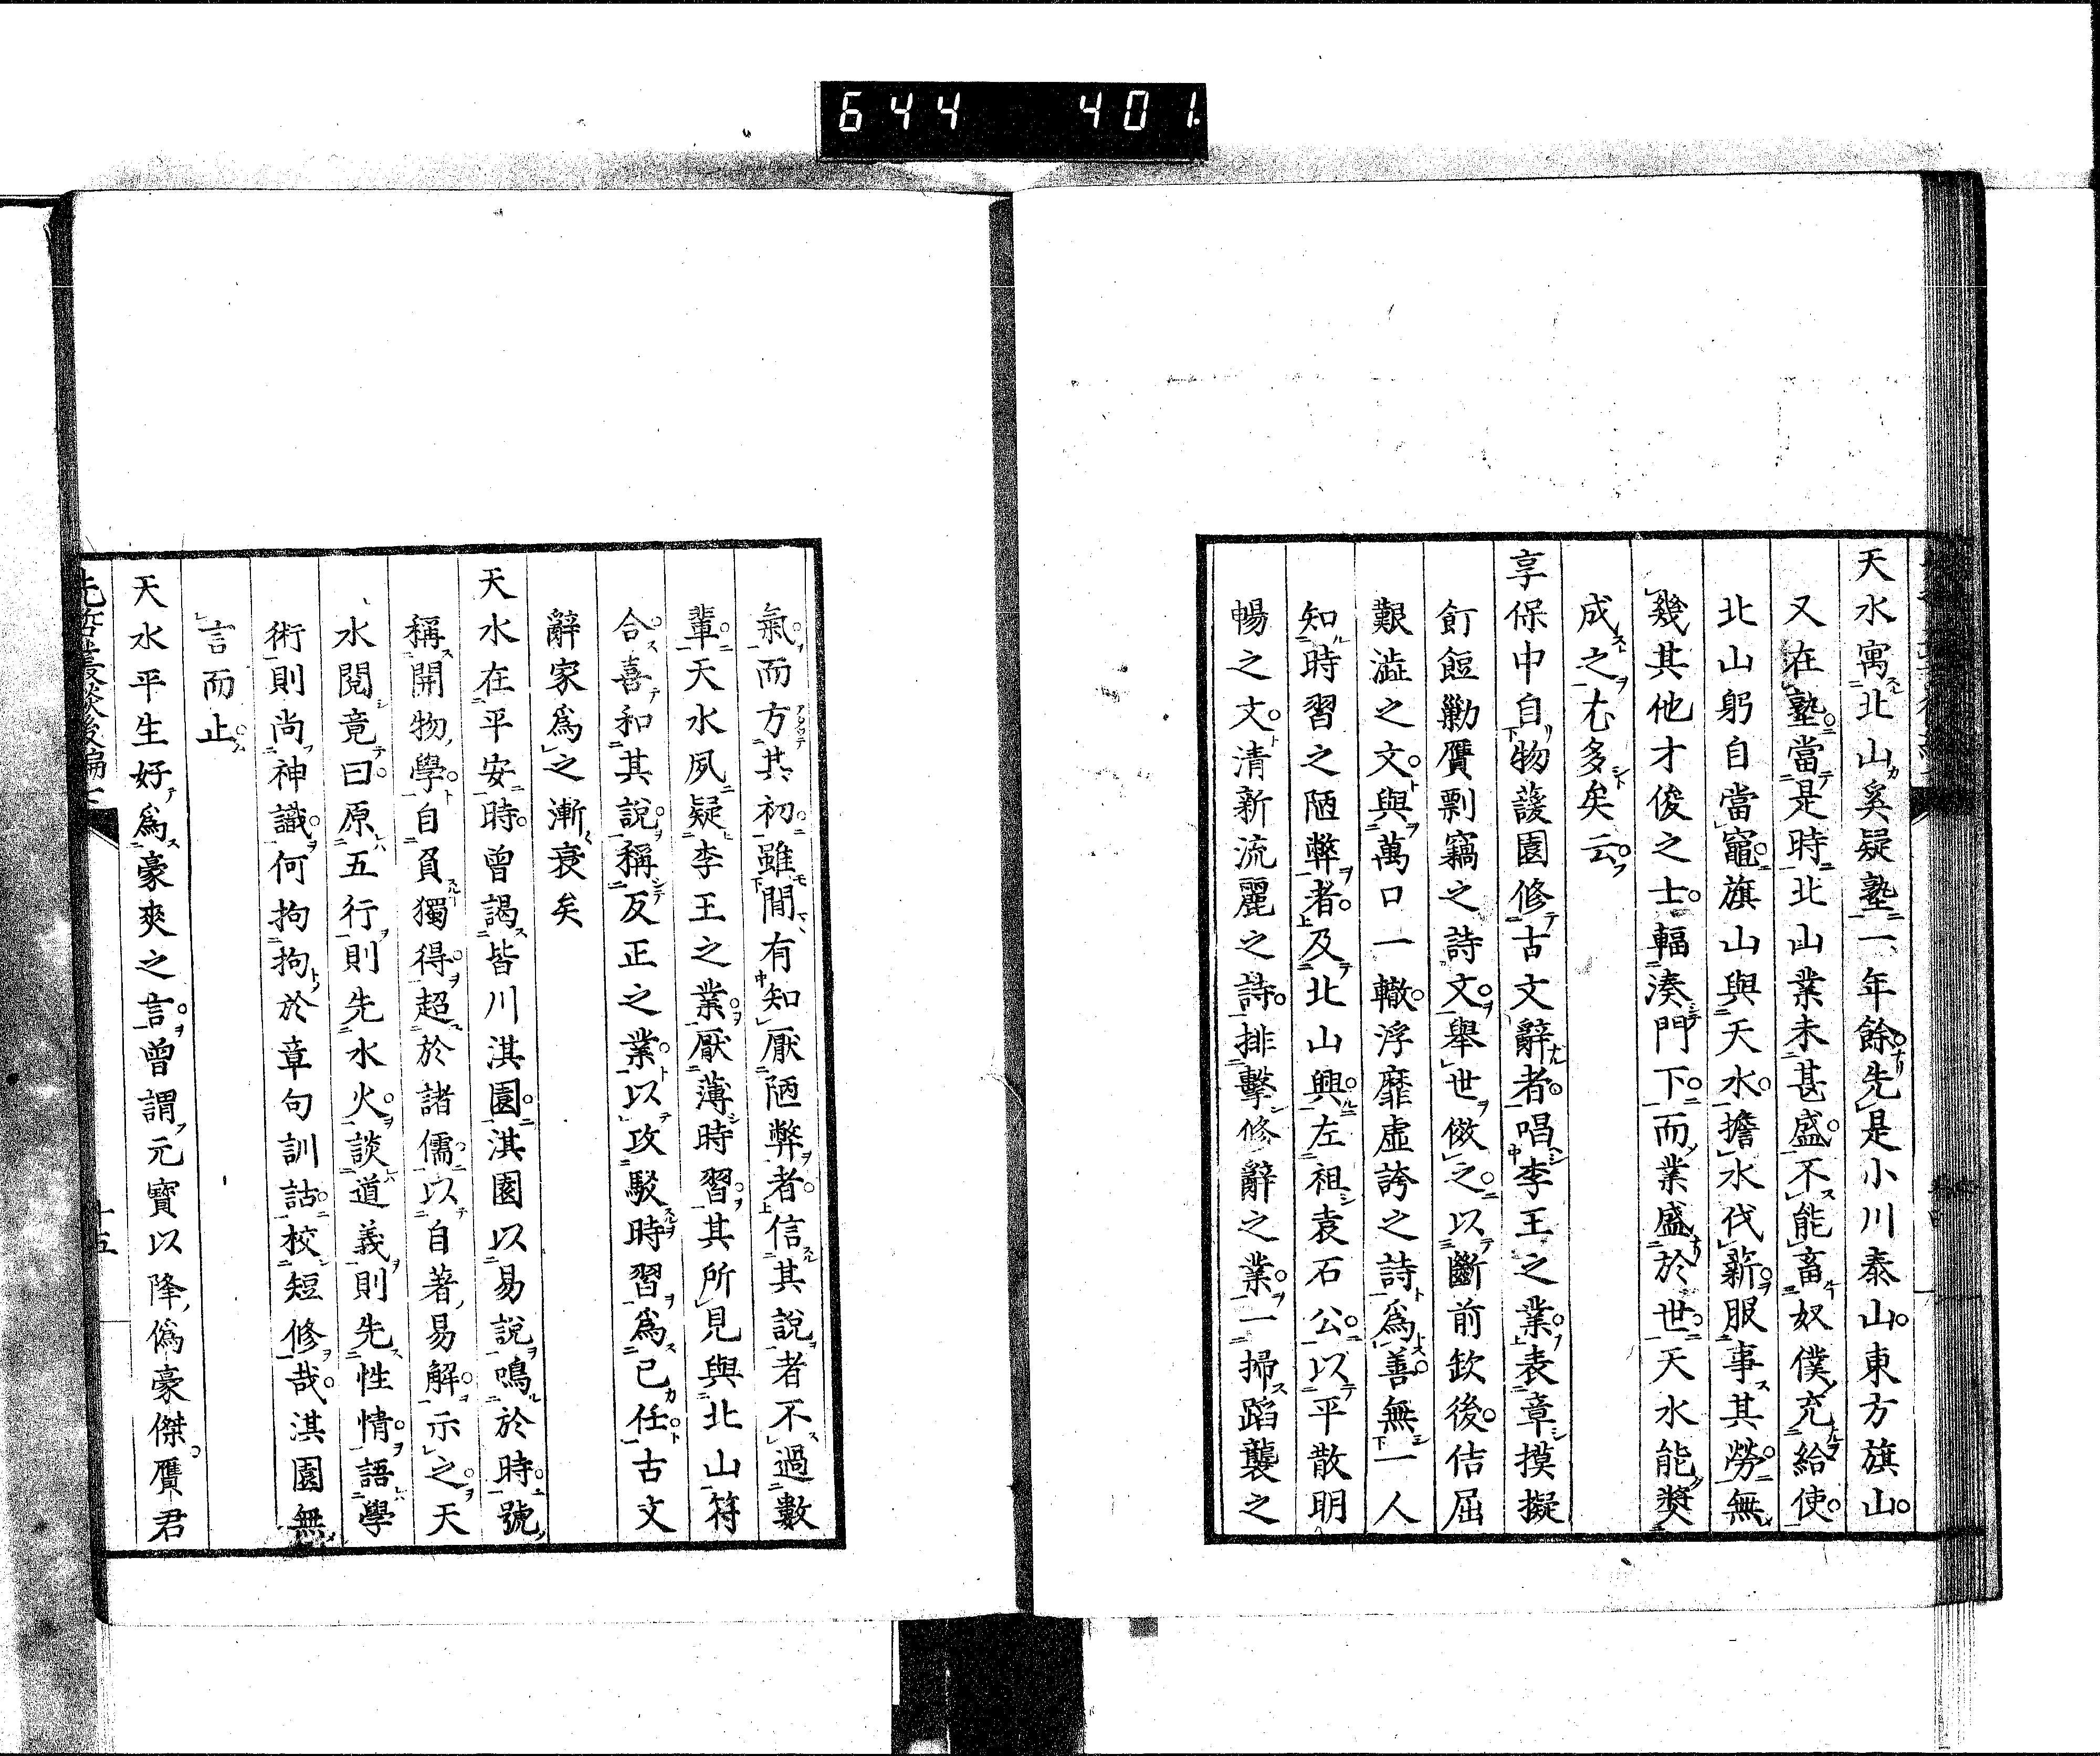 644 401.
天水寓北山奚疑塾一年餘先是小川泰山東方旗山
又在塾當是時北山業未甚盛不能畜奴僕充給使
北山躬自當竈旗山與天水擔水伐薪服事其勞無
幾其他才俊之士輻湊門下而業盛於世天水能奬
成之尤多矣云
享保中自物蘐園修古文辭者唱李王之業表章摸擬
飣餖勦贋剽竊之詩文擧世倣之以斷前欸後佶屈
艱澁之文與萬口一轍浮靡虛誇之詩爲善無一人
知時習之陋弊者及北山興左祖袁石公以平散明
暢之文清新流麗之詩排擊修辭之業一掃蹈襲之
氣而方其初雖間有知厭陋弊者信其說者不過數
輩天水夙疑李王之業厭薄時習其所見與北山符
合喜和其說稱反正之業以攻駁時習爲己任古文
辭家爲之漸衰矣
天水在平安時曾謁皆川淇園淇園以易說鳴於時號
稱開物學自負獨得超於諸儒以自著易解示之天
水閱竟曰原五行則先水火談道義則先性情語學
術則尚神識何拘拘於章句訓詁校短修哉淇園無
言而止
天水平生好爲豪爽之言曾謂元寶以降僞豪傑贋君
先哲叢談後編
十五